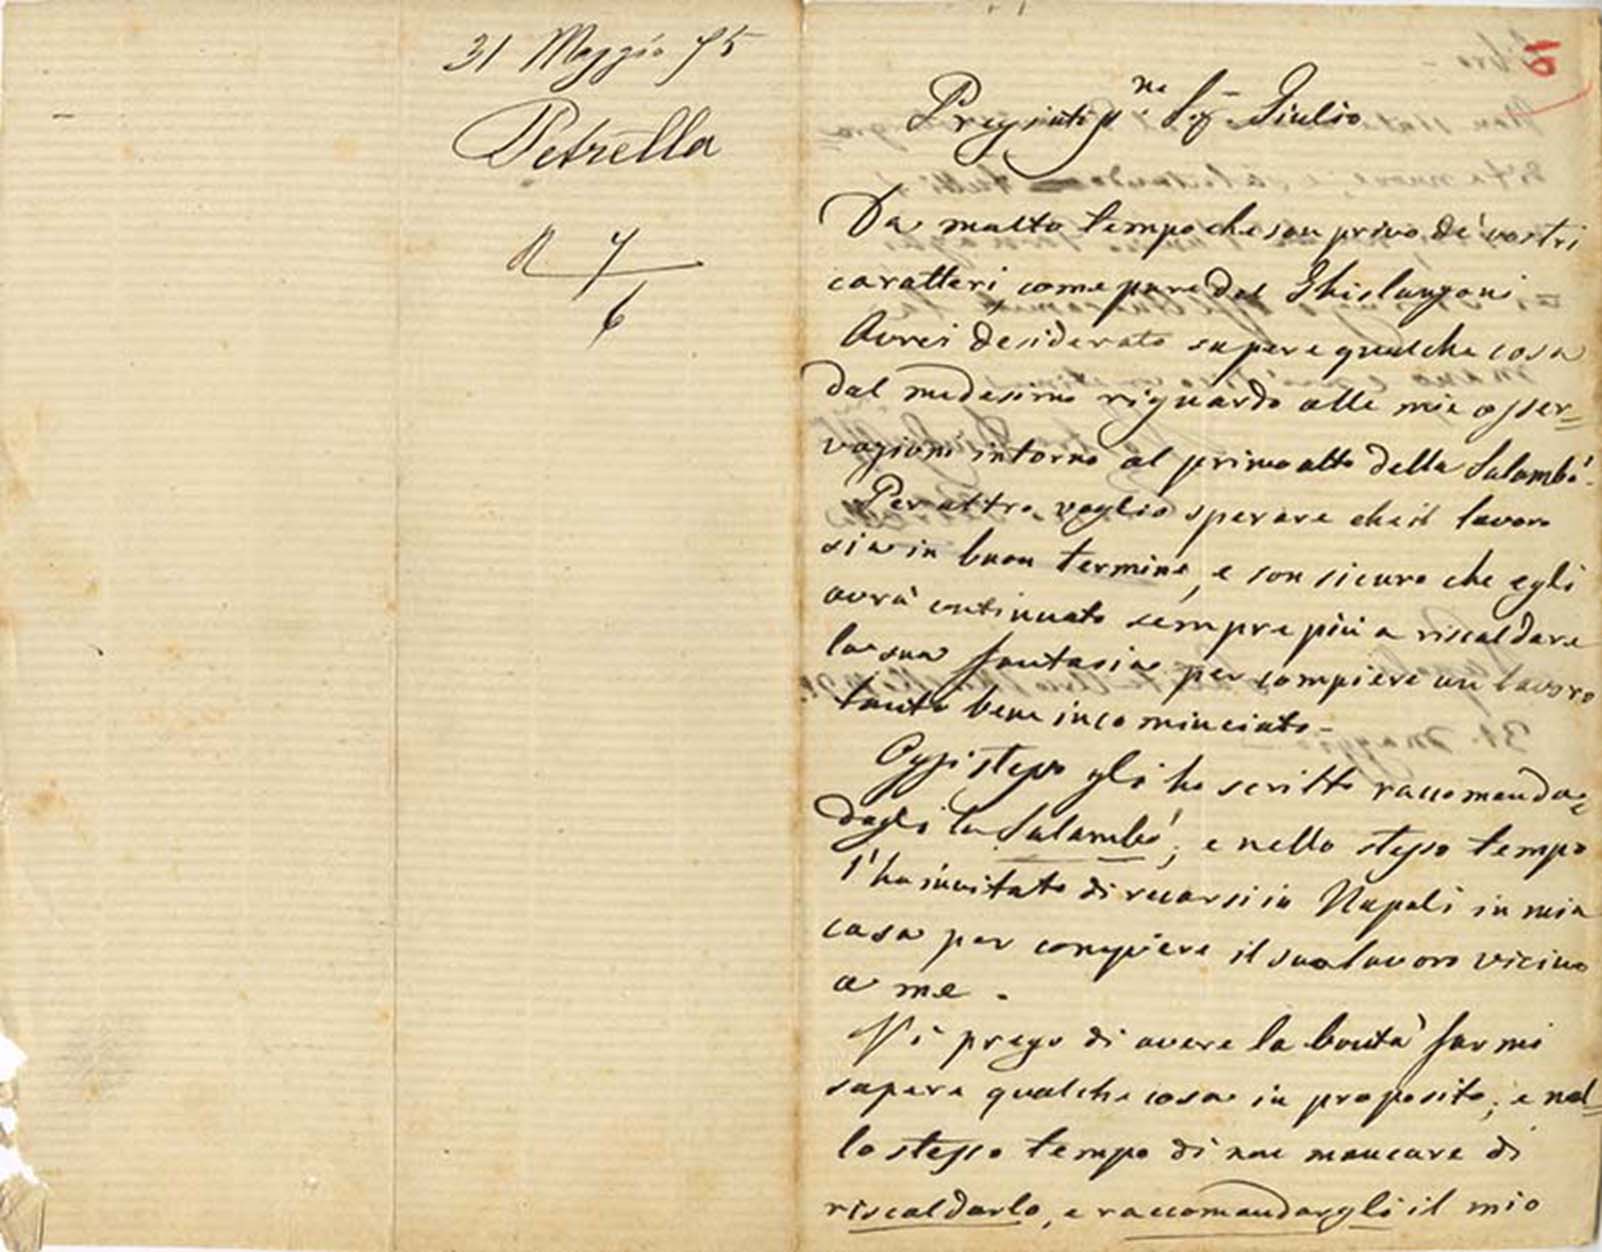 31 Maggio 75
Petrella
R 7
6
Pregiatismo Sigr Giulio
Da molto tempo che son privo de' vostri
caratteri come pure del Ghislanzoni
Avrei desiderato sapere qualche cosa
dal medesimo riguardo alle mie osser=
vazioni intorno al primo atto della Salambò.
Per altro voglio sperare che il lavoro
sia in buon termine, e son sicuro che egli
avrà continuato sempre più a riscaldare
la sua fantasia per compiere un lavoro
tanto bene incominciato-
Oggi stesso gli ho scritto raccomandan=
dogli la Salambò, e nello stesso tempo
l'ho invitato di recarsi in Napoli in mia
casa per compiere il suo lavoro vicino
a me.
Vi prego di avere la bontà farmi
sapere qualche cosa in proposito; e nel=
lo stesso tempo di non mancare di
riscaldarlo, e raccomandargli il mio